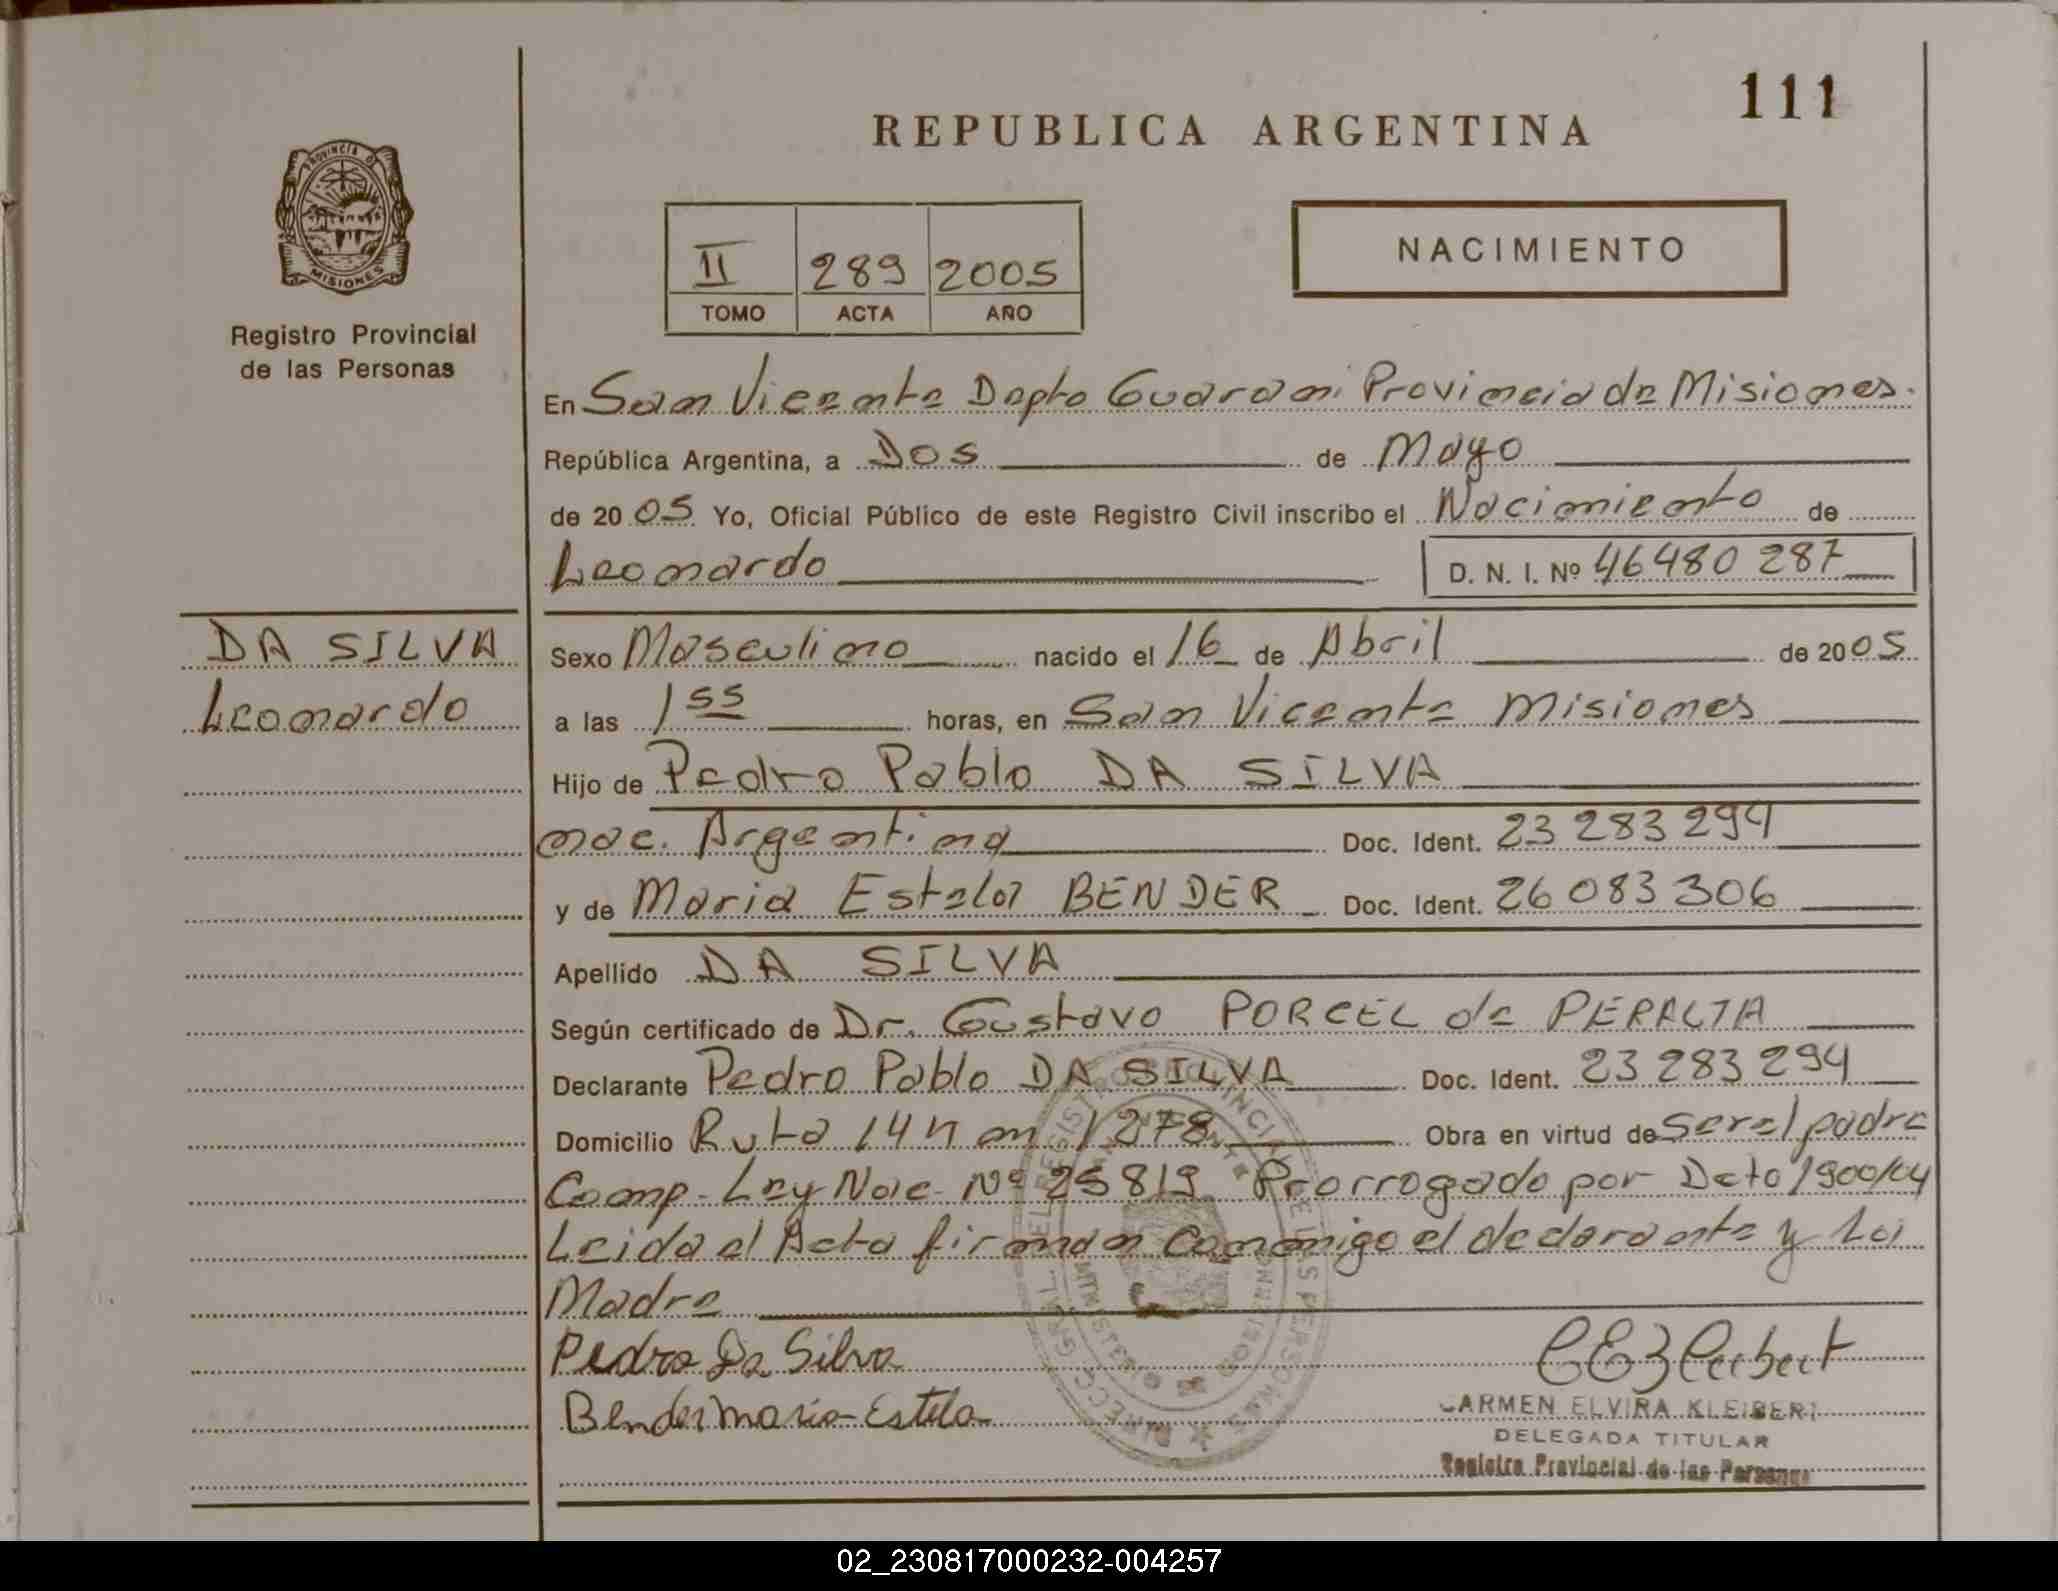 111
REPUBLICA ARGENTINA
PROVINCIA D
MISIONES
Registro Provincial
de las Personas
II 289 2005
TOMO ACTA AÑO
NACIMIENTO
En San Vicente Depto Guarani Provincia de Misiones.
República Argentina, a Dos de Mayo
de 2005 Yo, Oficial Público de este Registro Civil inscribo el Nacimiento de
Leonardo D. N. I. Nº 46480 287
DA SILVA
Leonardo
Sexo Masculino nacido el 16 de Abril de 2005
a las 1 55 horas, en San Vicente Misiones
Hijo de Pedro Pablo DA SILVA
nac. Argentina Doc. Ident. 23 283 294
y de Maria Estela BENDER Doc. Ident. 26 083 306
Apellido DA SILVA
Según certificado de Dr. Gustavo PORCEL de PERALTA
Declarante Pedro Pablo DA SILVA Doc. Ident. 23 283 294
Domicilio Ruta 14 Km 1278 Obra en virtud de ser el padre
Comp. Ley Nac. Nº 25819 Prorrogado por Dcto 1900/04
Leida el Acta firman Conmigo el declarante y La
Madre
Pedro Da Silva
Bender Maria Estela
CARMEN ELVIRA KLEIBERT
DELEGADA TITULAR
Registro Provincial de las Personas
02_230817000232-004257